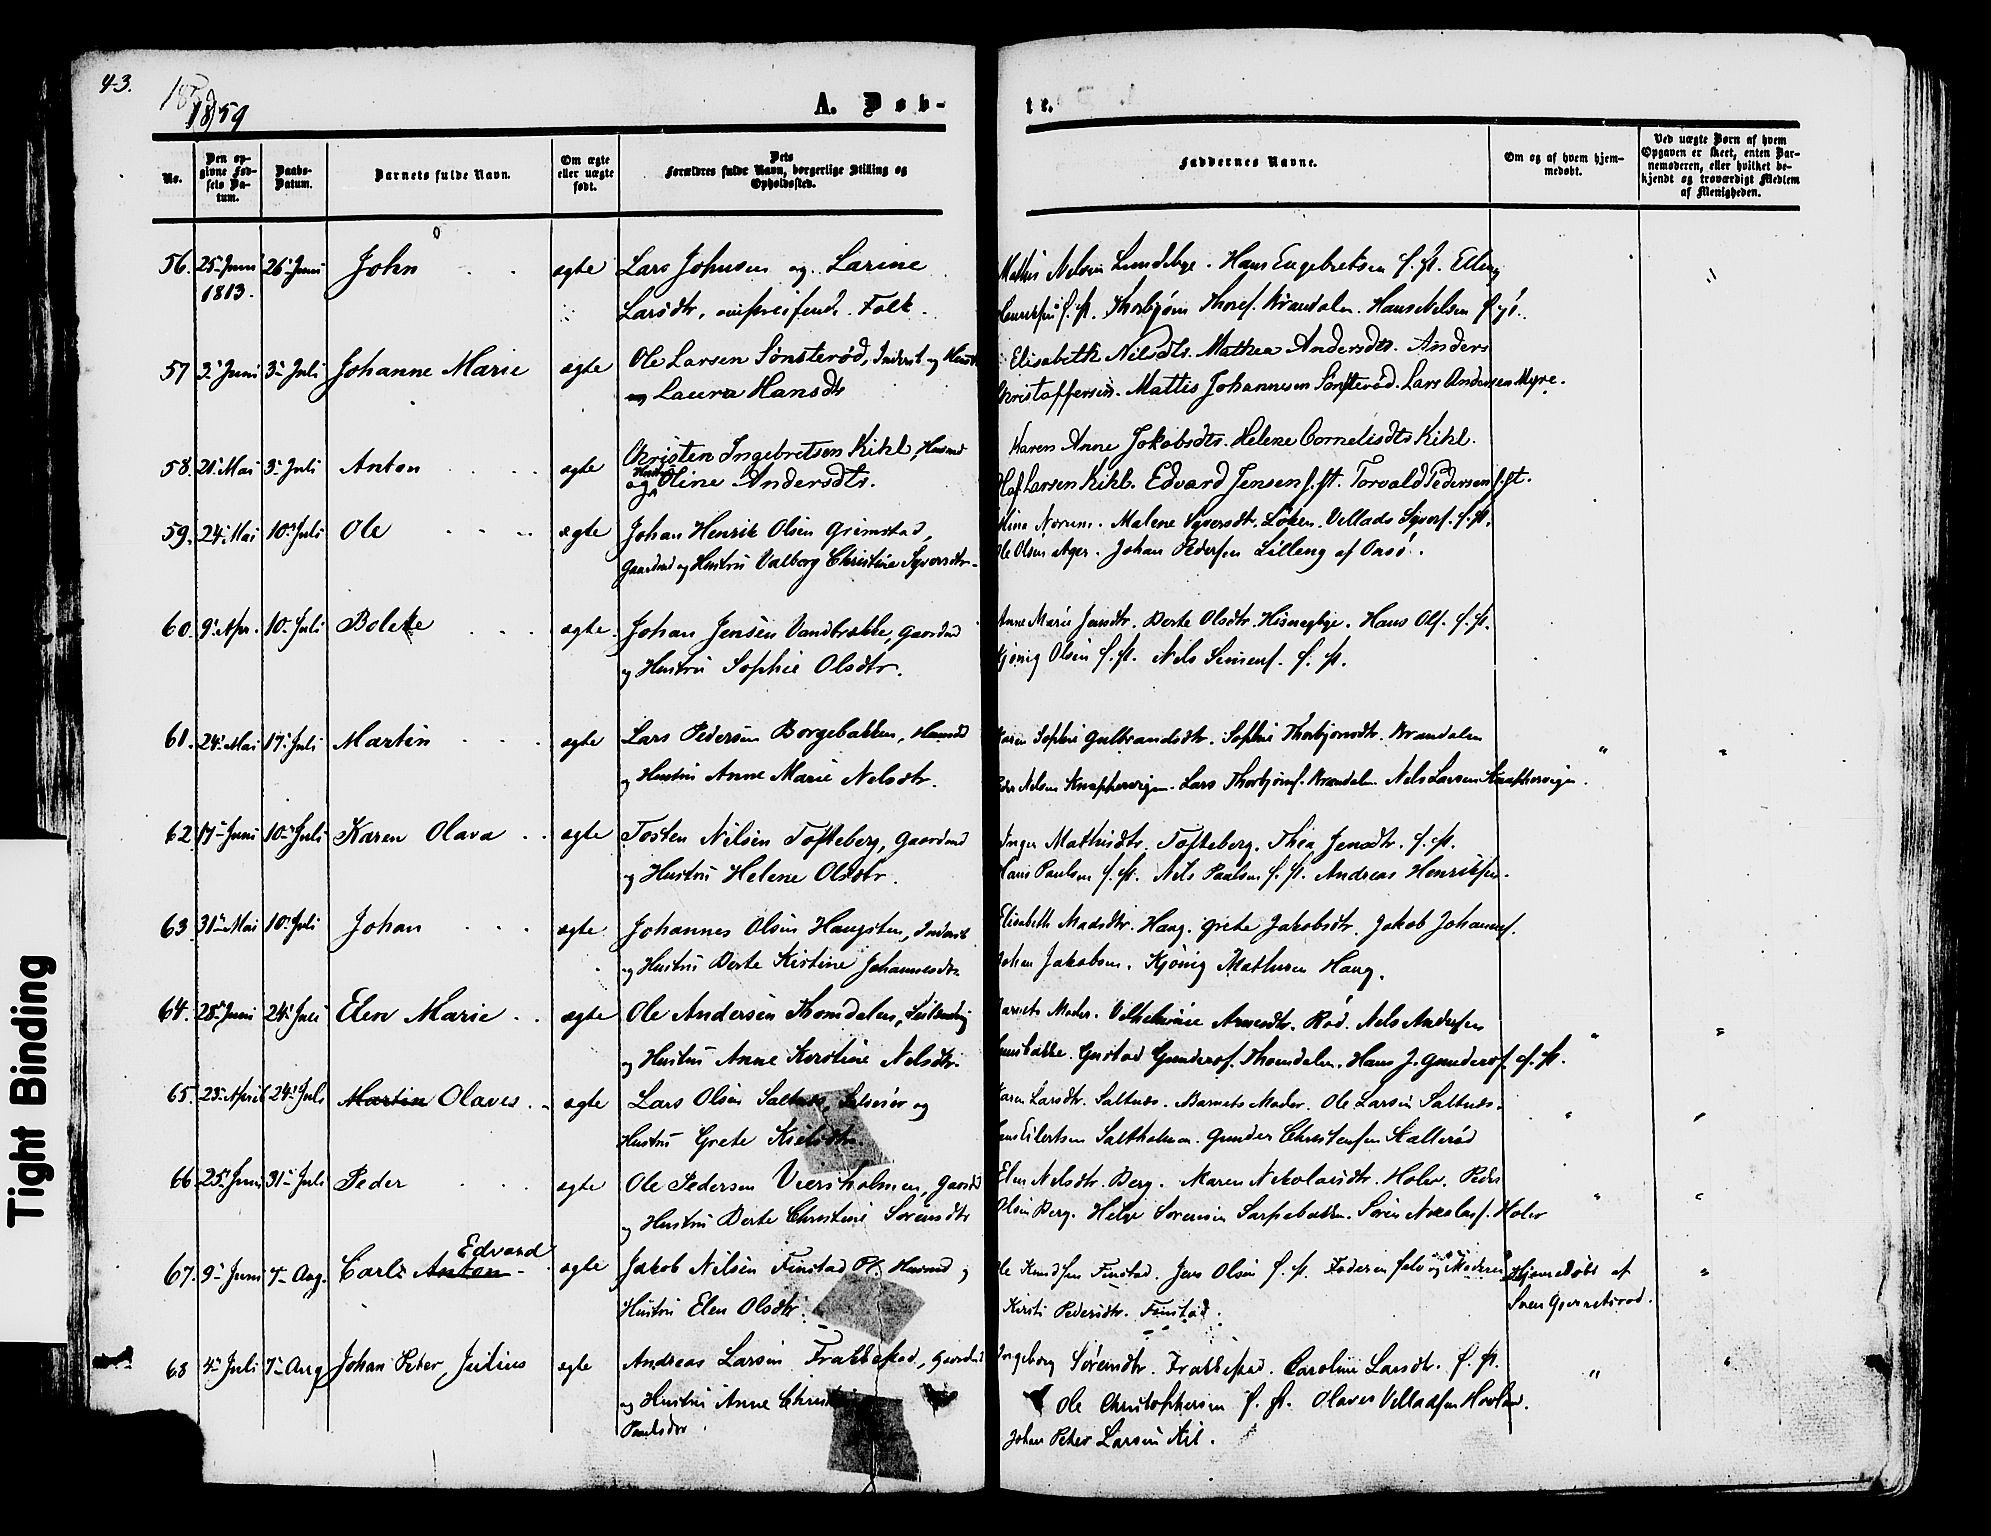 43.
1859
A. Døb-
te.
No.
Den op-
givne Fød-
sels Da-
tum.
Daabs-
Datum.
Barnets fulde Navn.
Om ægte
eller uægte
født.
Dets
Forældres fulde Navn, borgerlige Stilling og
Opholdssted.
Faddernes Navne.
Om og af hvem hjem-
medøbt.
Ved uægte Børn af hvem
Opgaven er skeet, enten Bar-
nemoderen, eller hvilket be-
kjendt og troværdigt Medlem
af Menigheden.
56. 25. Juni 26. Juni John ægte Lars Johnsen og Larine
1813.
Larsdtr, Folk.
Nelsen Lundsbye. Hans Engebretsen f. st. Elling
f. st. Thorbjørn Thoresf. Brændalen. Hans Nelsen
57 3. Juni 3. Juli Johanne Marie ægte Ole Larsen Sønsterød, Inderst og Hustr
og Laura Hansdtr
Elisabeth Nilsdtr. Mathea Andersdtr. Anders
Christoffersen. Mattis Johannesen Sønsterød. Lars Andersen Myre.
58. 21. Mai 3. Juli Anton ægte Christen Ingebretsen Kihl, Husmd
og Hustru Oline Andersdtr.
Karen Anne Jakobsdtr. Helene Cornelisdtr Kihl.
Olaf Larsen Kihl. Edvard Jensen f. st. Torvald Pedersen f. st.
59. 24. Mai 10. Juli Ole ægte Johan Henrik Olsen Grimstad,
Gaardmd og Hustru Valborg Christine Syversdtr.
Norum. Malene Syversdtr. Løken. Vellads Syversf. f. st.
Ole Olsen Ager. Johan Pedersen Lilleng af Onsø.
60. 9. Apr. 10. Juli Bolette ægte. Johan Jensen Vandbække, Gaardmd
og Hustru Sophie Olsdtr.
Anne Marie Jensdtr. Berte Olsdtr. Hisnegbye. Hans Olsf. f. st.
Kjønig Olsen f. st. Nels Simensf. f. st.
61. 24. Mai 17. Juli Martin ægte Lars Pedersen Borgebakken, Husmd
og Hustru Anne Marie Nelsdtr.
Karen Sophie Gulbrandsdtr. Sophie Thorbjørnsdtr. Brændalen
Peder Nelsen Knappervigen. Lars Thorbjørnsf. Brændalen. Nels Larsen Knappervigen.
62. 17. Juni 10. Juli Karen Olava ægte Tosten Nilsen Tofteberg, Gaardmd
og Hustru Helene Olsdtr.
Inger Mathisdtr. Tofteberg. Thea Jensdtr. f. st.
Hans Paulsen f. st. Nels Paulsen f. st. Andreas Henriksen.
63. 31. Mai 10. Juli Johan ægte. Johannes Olsen Haugsten, Inderst
og Hustru Berte Kirstine Johannesdtr.
Elisabeth Madsdtr. Haug. Grete Jakobsdtr. Jakob Johannesf.
Johan Jakobsen. Kjønig Mathisen Haug.
64. 28. Juni 24. Juli Elen Marie ægte Ole Andersen Thomdalen,
og Hustru Anne Kirstine Nelsdtr.
Barnets Moder. Vilhelmine Arnesdtr. Rød. Nels Andersen
Gustad Gundersf. Thomdalen. Hans J. Gundersf. f. st.
65. 23. April 24. Juli Martin Olaves. ægte Lars Olsen Saltnæs, Selveier og
Hustru Grete Kielsdtr.
Karen Larsdtr. Saltnæs. Barnets Moder. Ole Larsen Saltnæs.
Eilertsen Saltholmen. Gunder Christensen Skallerød
66. 25. Juni 31. Juli Peder ægte Ole Pedersen Viersholmen, Gaardmd
og Hustru Berte Christine Sørensdtr
Elen Nelsdtr. Berg. Maren Nikolaisdtr. Holer. Peder
Olsen Berg. Helge Sørensen Sarpebakken. Søren Nikolaisf. Holer
67. 9. Juni 7. Aug. Carl Anton Edvard ægte Jakob Nilsen Finstad Pl. Husmd og
Hustru Elen Olsdtr.
Ole Knudsen Finstad. Jens Olsen f. st. Faderen selv og Moderen
Kirsti Pedersdtr. Finstad.
Hjemmedøbt af
Sven
68 4. Juli 7. Aug Johan Peter Julius ægte Andreas Larsen Frakkestad, Gaardmd
og Hustru Anne
Paulsdtr
Ingeborg Sørensdtr. Frakkestad. Caroline Larsdtr. f. st.
Ole Christophersen f. st. Olaves Velladsen Hovland.
Johan Peter Larsen Kil.
Tight Binding